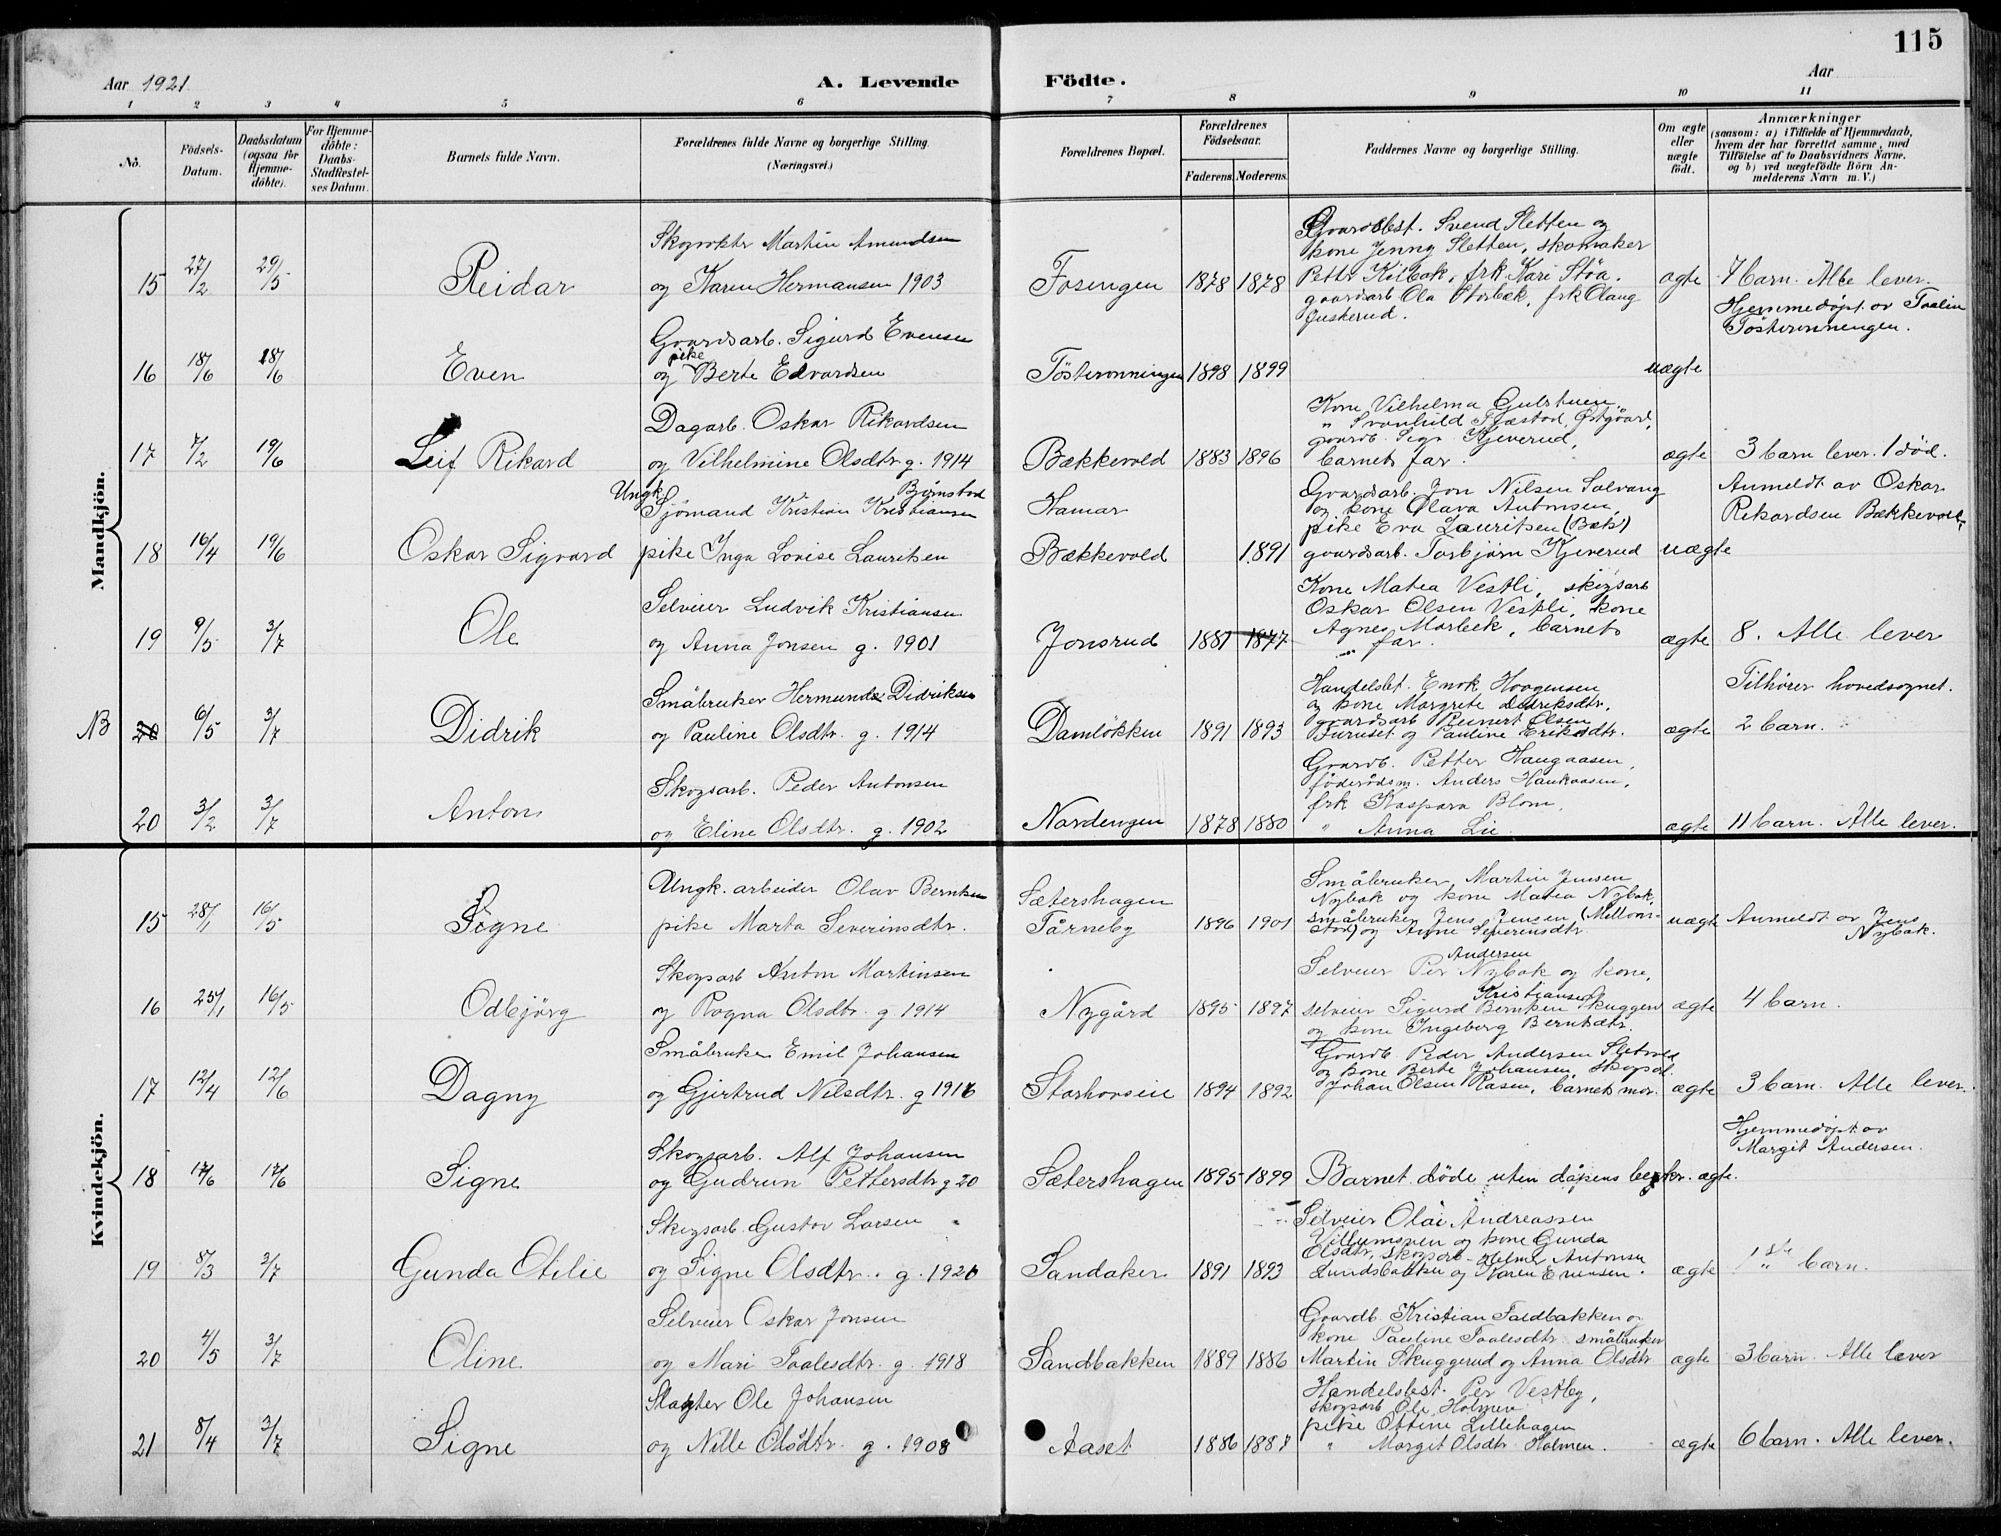 115
Aar 1921
A. Levende
Födte.
Aar
1 2 3 4 5 6 7 8 9 10 11
Nö.
Födsels-Datum.
Daabsdatum (ogsaa for Hjemme-döbte).
For Hjemme-döbte: Daabs-Stadfæstel-ses Datum.
Barnets fulde Navn.
Forældrenes fulde Navne og borgerlige Stilling. (Næringsvei.)
Forældrenes Bopæl.
Forældrenes Födselsaar.
Faderens. Moderens.
Faddernes Navne og borgerlige Stilling.
Om ægte eller uægte födt.
Anmærkninger
(saasom: a) i Tilfælde af Hjemmedaab,
hvem der har forrettet samme, med
Tilföielse af to Daabsvidners Navne.
og b) ved uægtefödte Börn An-
melderens Navn m. V.)
Mandkjön.
15 27/2 29/5 Reidar
Martin Amundsen
og Karen Hermansen 1903
Fosengen 1878 1878
Gaardbest. Svend Sletten og
kone Jenny Sletten, skomaker
Petter Kilbak, frk Kari Støa.
gaardsarb Ola Storbæk, frk Olaug
Juskerud.
ægte 7 barn. Alle lever.
16 18/6 18/6 Even
Gaardsarb. Sigurd Evensen
pike
og Berte Edvardsen
Tösterønningen 1898 1899
uægte
Hjemmedøpt av Taalin
Tösterønningen.
17 7/2 19/6 Leif Rikard
Dagarb. Oskar Rikardsen
og Vilhelmine Olsdtr g. 1914
Bækkevold 1883 1896
Kone Vilhelma Gulstuen,
" Svanhild Fjæstad, Østgaard,
gaardb. Kjeverud,
barnets far.
ægte 3 barn lever. 1 død.
18 16/4 19/6 Oskar Sigvard
Ungk. Bjørnstad
Sjømand Kristian Kristiansen
pike Inga Lovise Lauritsen
Hamar
Bækkevold 1891
Gaardsarb. Jon Nilsen Solvang
og kone Olava Antonsen,
pike Eva Lauritsen (Bæk?)
gaardsarb. Torbjørn Kjeverud
uægte
Anmeldt av Oskar
Rikardsen Bækkevold.
19 9/5 3/7 Ole
Selveier Ludvik Kristiansen
og Anna Jonsen g. 1901
Jonsrud 1881 1877
Kone Matea Vestli, skogsarb
Oskar Olsen Vestli, kone
Agnes Morbek, barnets
" far.
ægte 8. Alle lever
NB 20 6/5 3/7 Didrik
Småbruker Hermund Didriksen
og Pauline Olsdtr. g. 1914
Damløkken 1891 1893
Handelsbet. Enok Haagensen
og kone Margrete Didriksdtr,
gaardsarb Reinert Olsen
Furuset og Pauline Eriksdtr.
ægte
Tilhører hovedsognet.
2 barn.
20 3/2 3/7 Anton
Skogsarb. Peder Antonsen
og Eline Olsdtr. g. 1902
Nordengen 1878 1880
Gaardb. Petter Haugaasen,
föderådsm. Anders Haukaasen,
frk Kaspara Blom,
" Anna Lie
ægte 11 barn. Alle lever.
Kvindekjön.
15 28/1 16/5 Signe
Ungk. arbeider Olav Berntsen
pike Marta Severinsdtr.
Sætershagen
Tårneby 1896 1901
Småbruker Martin Jensen
Nybak og kone Matea Nybak,
småbruker Jens Jensen (Mellom-
stad) og Anne Severinsdtr
uægte Anmeldt av Jens
Nybak.
16 25/1 16/5 Odbjörg
Skogsarb Anton Martinsen
og Ragna Olsdtr. g. 1914
Nygård 1895 1897
Andersen
Selveier Per Nybak og kone,
Kristiansen
selveier Sigurd Berntsen Skuggerud
og kone Ingeborg Berntsdtr.
ægte 4 barn.
17 12/4 12/6 Dagny
Småbruker Emil Johansen
og Gjertrud Nilsdtr. g 1916
Storhovseie 1894 1892
Gaardb Peder Andersen Sletvold
og kone Berte Johansen, skogsarb.
Johan Olsen Rasen, barnets mor.
ægte 3 barn. Alle lever.
18 17/6 17/6 Signe
Skogsarb. Alf Johansen
og Gudrun Pettersdtr g 20
Sætershagen 1895 1899
Barnet døde uten dåpens bekr. ægte.
Hjemmedøpt av
Margit Andersen.
19 8/3 3/7 Gunda Otilie
Skogsarb. Gustav Larsen
og Signe Olsdtr. g. 1920
Sandaker 1891 1893
Selveier Olai Andreassen
Villumsven og kone Gunda
Olsdtr, skogsarb Helmer Antonsen
Lundsbakken og Karen Evensen.
ægte 1ste barn.
20 4/5 3/7 Oline
Selveier Oskar Jonsen
og Mari Taalesdtr. g. 1918
Sandbakken 1889 1886
Gaardb. Kristian Faldbakken og
kone Pauline Taalesdtr. småbruker
Martin Skuggerud og Anna Olsdtr
ægte 3 barn. Alle lever
21 8/4 3/7 Signe
Slagter Ole Johansen
og Nille Olsdtr. g. 1908
Aaset 1886 1887
Handelsbest. Per Vestby,
skogsarb Ole Holmen
pike Ottine Lillehagen
" Margit Olsdtr Holmen.
ægte 6 barn. Alle lever.